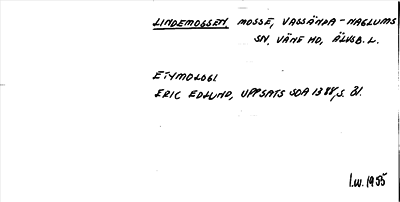 LINDEMOSSEN, MOSSE, VASSÄNDA-NAGLUMS
SN, VÄNE HD, ÄLVSB. L.
ETYMOLOGI
ERIC EDLUND, UPPSATS SOA 1388, S. 21.
I.W. 1955